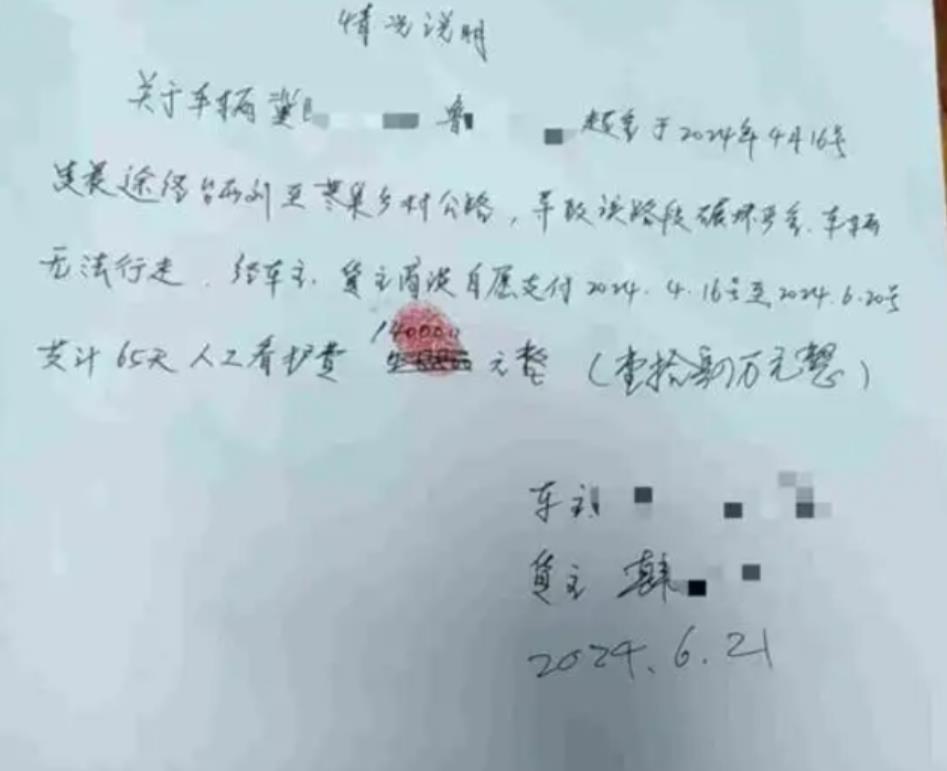 情况说明
关于车辆冀 鲁 超重于2024年4月16号
凌晨途经 刘至 集乡村公路,导致该路段破坏严重,车辆
无法行走,经车主、货主商谈自愿支付2024.4.16号至2024.6.20号
共计65天人工看护费 140000 元整(壹拾肆万元整)
车主
货主 韩
2024.6.21